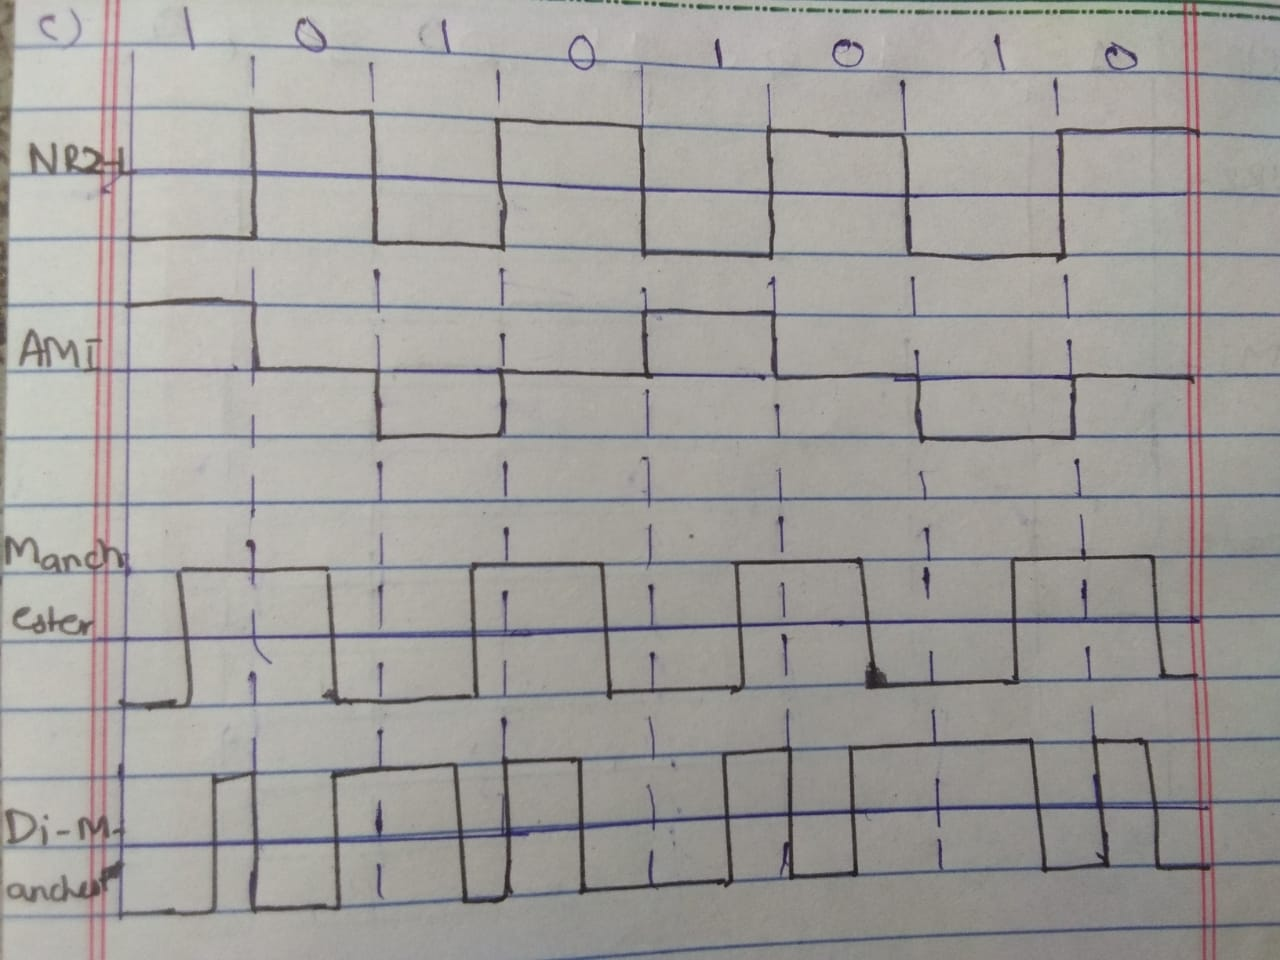 c) 1 0 1 0 1 0 1 0
NRZ-L
AMI
Manch
ester
Di-M-
anchest